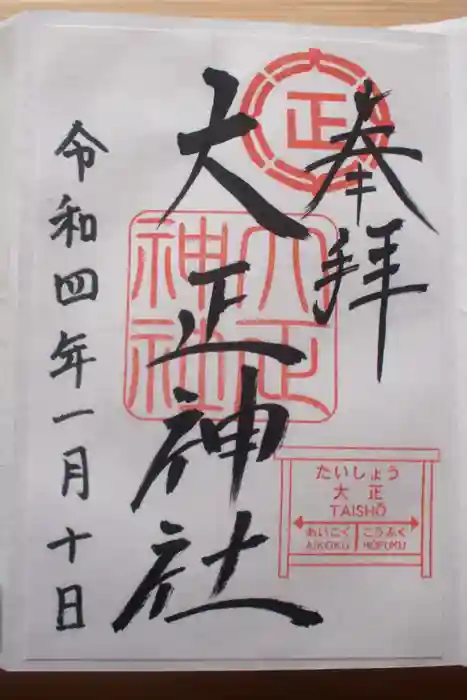 奉拝
正
大正神社
大正神社
令和四年一月十日
たいしょう
大正
TAISHŌ
あいこく こうふく
AIKOKU KOFUKU